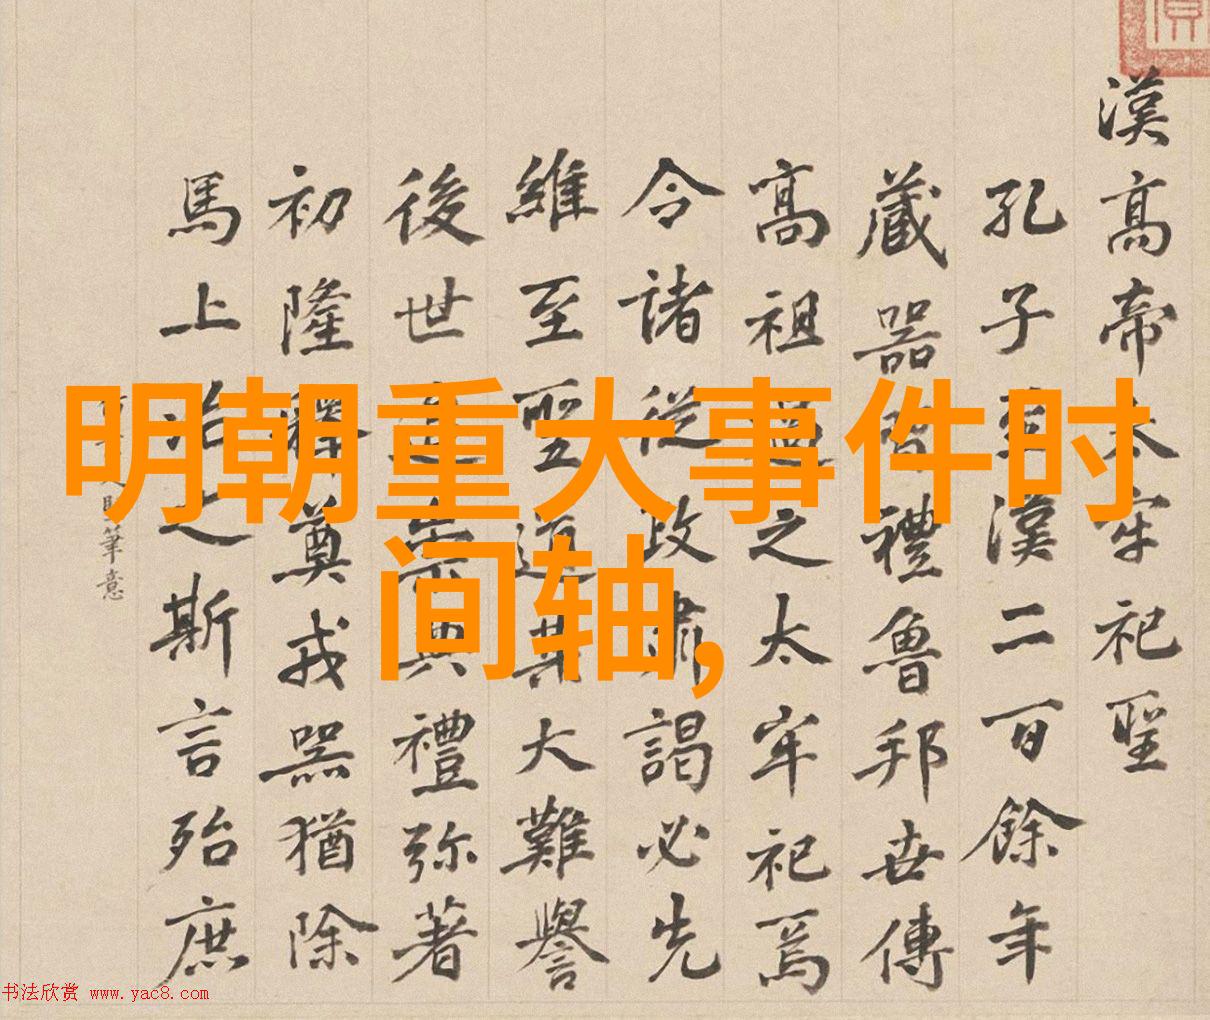 明朝重大事件时
间轴,
漢高帝太牢祀聖
孔子至漢二百餘年
藏器禮魯邦世傳
高祖過之太牢祀焉
令諸從政肅謁必先
維至聖道其大難譽
後世崇典禮弥著
初隆釋奠戎器猶除
馬上治之斯言殆庶
筆意
书法欣赏 www.yac8.com